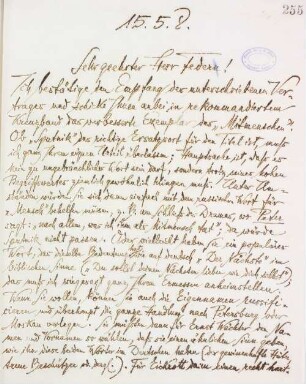 255
15.5.8.
Sehrgeehrter Herr Federn!
Ich bestätige den Empfang der unterschriebenen Ver-
trages und schicke Ihnen anbei, in rekommandiertem
Kreuzband das verbesserte Exemplar des „Mitmenschen".
Ob „Sputnik" das richtige Ersatzwort für den Titel ist, muß
ich ganz Ihrem eigenen Urteil überlassen; Hauptsache ist, daß es
kein zu ungebräuchliches Wort sein darf, sondern trotz seines hohen
Begriffswertes ziemlich gewöhnlich klingen muß. Unter Um-
ständen würden Sie sich dann einfach mit dem russischen Wort für
Mensch behelfen müssen, z. B. am Schluß des Dramas, wo Peter
sagt: „nach allem, was ich Ihm als Mitmensch tat"; da würde
Sputnik nicht passen. Oder vielleicht haben Sie ein populäres
Wort, das dieselbe Bedeutung hat wie das deutsche „Der Nächste" im
biblischen Sinne („Du sollst deinen Nächsten lieben wie dich selbst");
das muß ich wie gesagt ganz Ihrem Ermessen anheimstellen.
Wenn Sie wollen, können Sie auch die Eigennamen russifi-
zieren und überhaupt die ganze Handlung nach Petersburg oder
Moskau verlegen. Sie müßten dann für Ernst Wächter den Na-
men und Vornamen so wählen, daß sie einen ähnlichen Sinn geben
wie ihn diese beiden Wörter im Deutschen haben (der gewissenhafte
treue Beschützer od. dergl.). Für